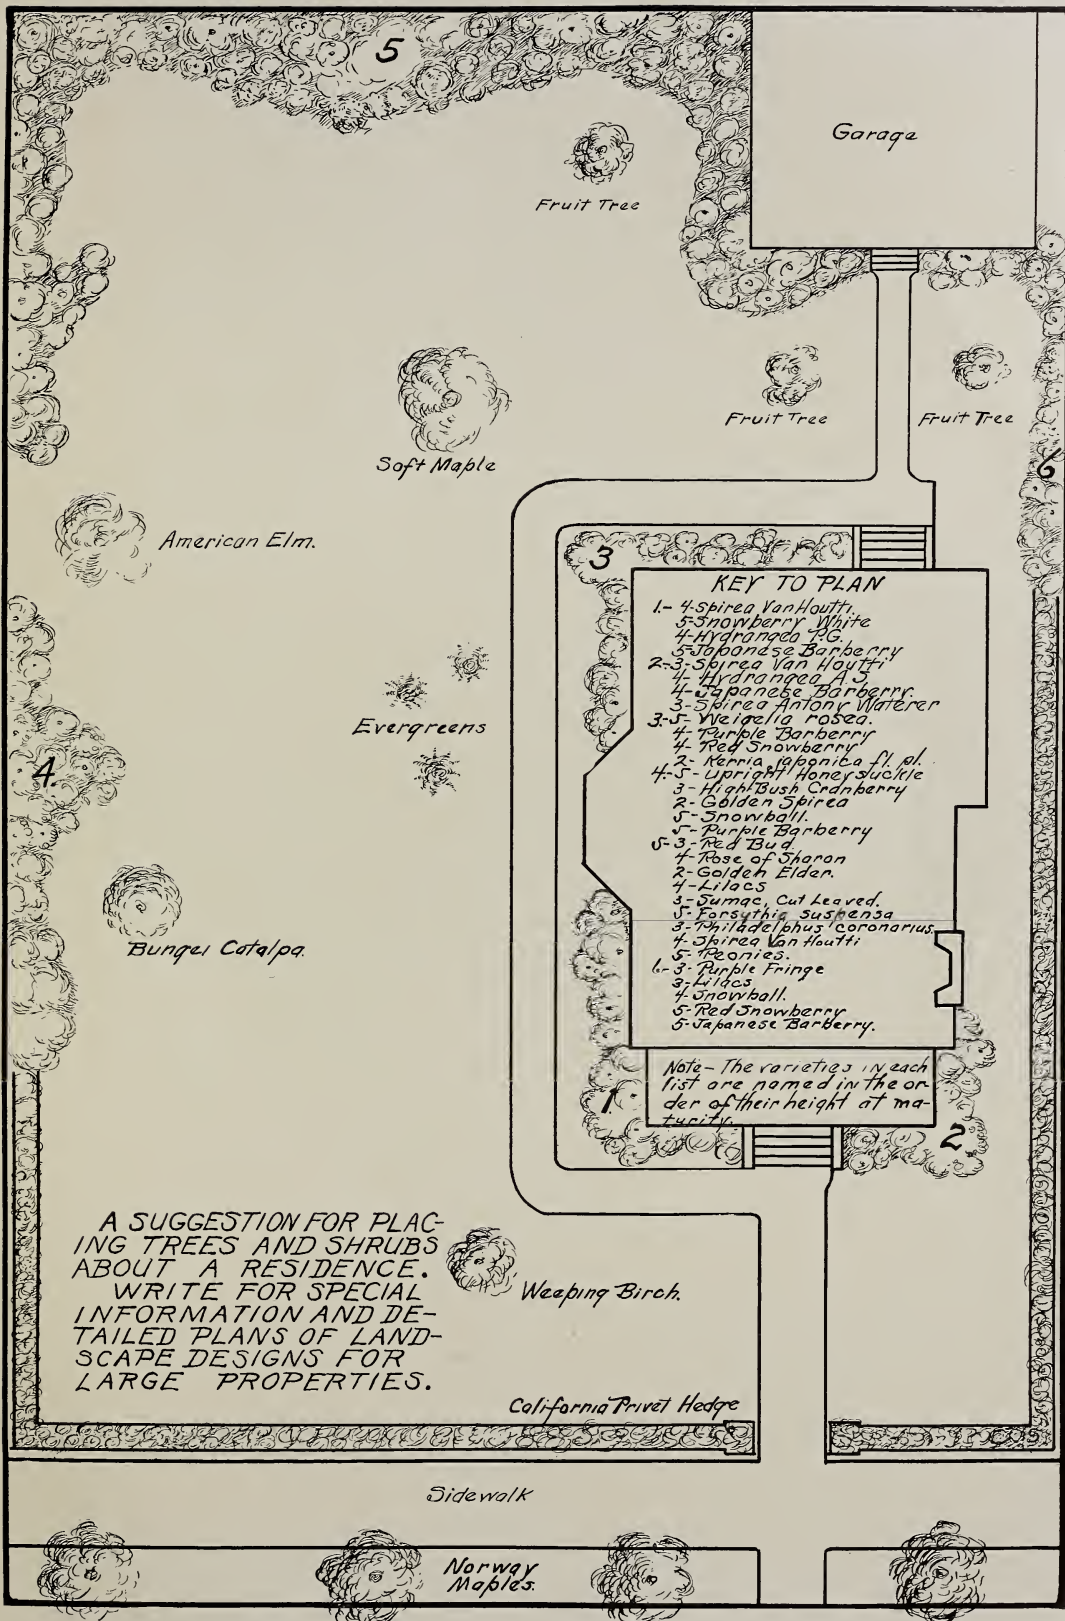 5
Garage
Fruit Tree
Fruit Tree
Fruit Tree
6
Soft Maple
American Elm.
3
KEY TO PLAN
1.- 4-Spirea VanHoutti.
5-Snowberry White
4-Hydrangea P.G.
5-Japanese Barberry
2.-3-Spirea Van Houtti
4- Hydrangea A.S.
4-Japanese Barberry.
3-Spirea Antony Waterer
3.-5- Weigelia rosea.
4- Purple Barberry
4- Red Snowberry
2- Kerria japonica fl. pl.
4.-5- Upright Honeysuckle
3-High Bush Cranberry
2-Golden Spirea
5-Snowball.
5-Purple Barberry
5-3-Red Bud.
4-Rose of Sharon
2-Golden Elder.
4-Lilacs
3-Sumac, Cut Leaved.
5-Forsythia suspensa
3-Philadelphus coronarius.
4-Spirea Van Houtti
5-Peonies.
6.-3-Purple Fringe
3-Lilacs
4-Snowball.
5-Red Snowberry
5-Japanese Barberry.
Evergreens
4.
Bungei Catalpa.
Note- The varieties in each
list are named in the or-
der of their height at ma-
turity.
1
2
A SUGGESTION FOR PLAC-
ING TREES AND SHRUBS
ABOUT A RESIDENCE.
WRITE FOR SPECIAL
INFORMATION AND DE-
TAILED PLANS OF LAND-
SCAPE DESIGNS FOR
LARGE PROPERTIES.
Weeping Birch.
California Privet Hedge
Sidewalk
Norway
Maples.